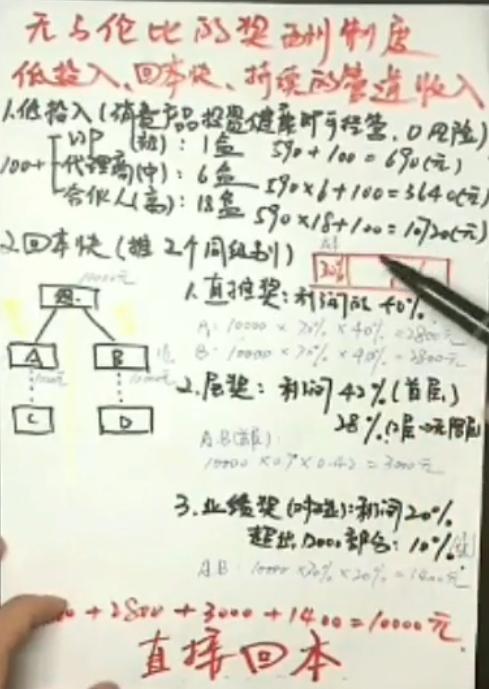 无与伦比的奖酬制度
低投入、回本快、持续的管道收入
1.低投入(消费产品投资健康即可经营、0风险)
100+
VIP (初): 1盒 590+100=690(元)
代理商(中): 6盒 590×6+100=3640(元)
合伙人(高): 18盒 590×18+100=10720(元)
2.回本快(推2个同级别)
30%
10000元
A B
C D
1.直推奖: 利润的40%
A: 10000×70%×40%=2800元
B: 10000×70%×40%=2800元
2.层奖: 利润42%(首层)
28%(2层→无限层)
A.B(首层):
10000×0.7×0.42=3000元
3.业绩奖(对碰): 利润20%
超出 部分: 10%
A.B: 10000×70%×20%=1400元
+2800+3000+1400=10000元
直接回本